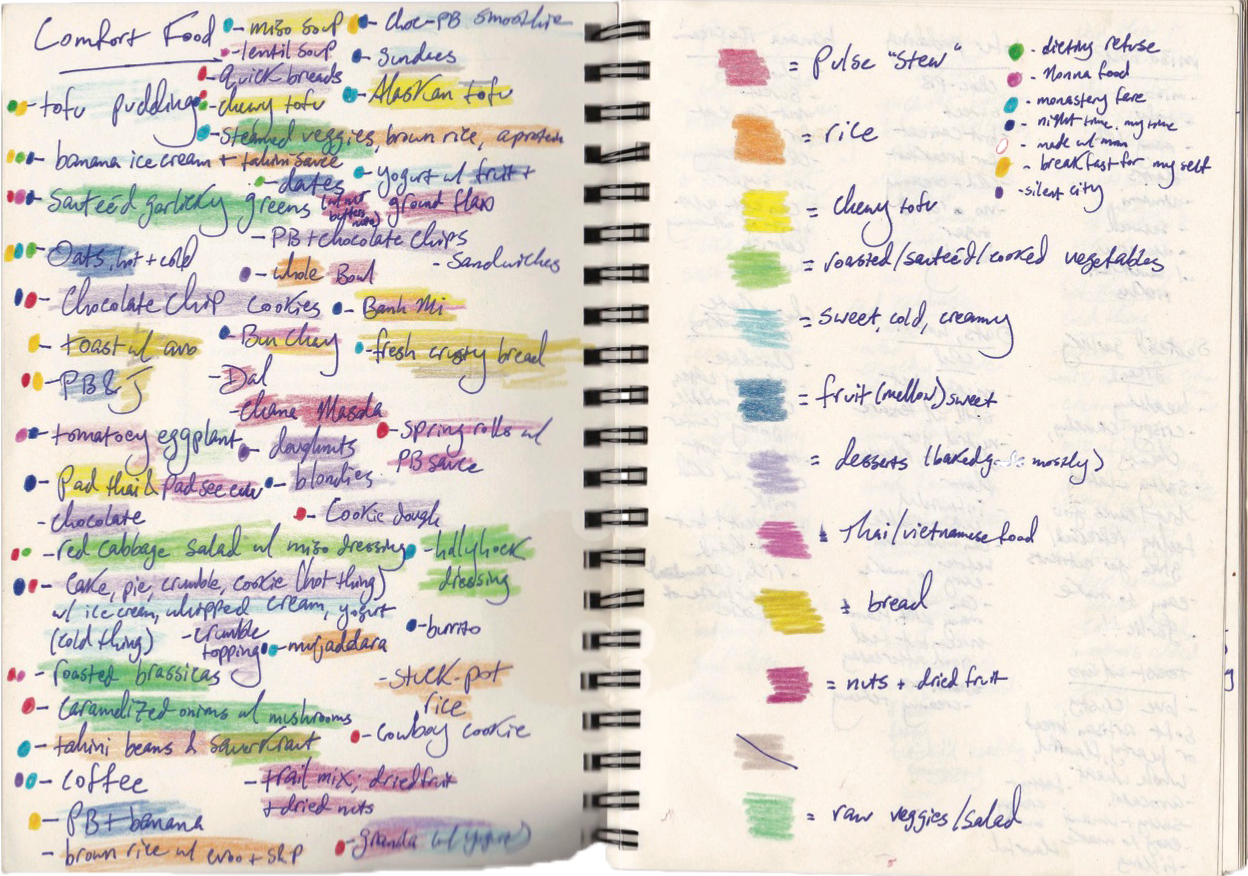 Comfort Food
- miso soup
- lentil soup
- quick breads
- tofu pudding
- chewy tofu
- steamed veggies, brown rice, a protein
- banana ice cream + tahini sauce
- dates
- Sauteéd garlicky greens (w/ nut butter
- PB + chocolate chips
- Oats, hot + cold
- whole Bowl
- Chocolate Chip cookies
- toast w/ avo
- Bun Chay
- PB & J
- Dal
- chana Masala
- tomatoey eggplant
- doughnuts
- Pad thai & pad see ew
- blondies
- chocolate
- Cookie dough
- red cabbage salad w/ miso dressing
- cake, pie, crumble, cookie (hot thing)
w/ ice cream, whipped cream, yogurt
(cold thing)
- crumble
topping
- mujaddara
- roasted brassicas
- caramelized onions w/ mushrooms
- tahini beans & sauerkraut
- coffee
- trail mix; dried fruit
+ dried nuts
- PB + banana
- brown rice w/ evoo + s & P
- choc-PB smoothie
- sundaes
- Alaskan tofu
- yogurt w/ fruit +
ground flax
- Sandwiches
- Banh Mi
- fresh crusty bread
- spring rolls w/
PB sauce
- hollyhock
dressing
- burrito
- stuck-pot
rice
- cowboy cookie
- granola w/ yogurt
= Pulse "Stew"
= rice
= chewy tofu
= roasted/sauteéd/cooked vegetables
= sweet, cold, creamy
= fruit (mellow) sweet
= desserts (baked mostly)
= Thai/vietnamese food
= bread
= nuts + dried fruit
= raw veggies/salad
- dieting refuse
- Nonna food
- monastery fare
- night time, my time
- made w/ mom
- breakfast for my self
- silent city